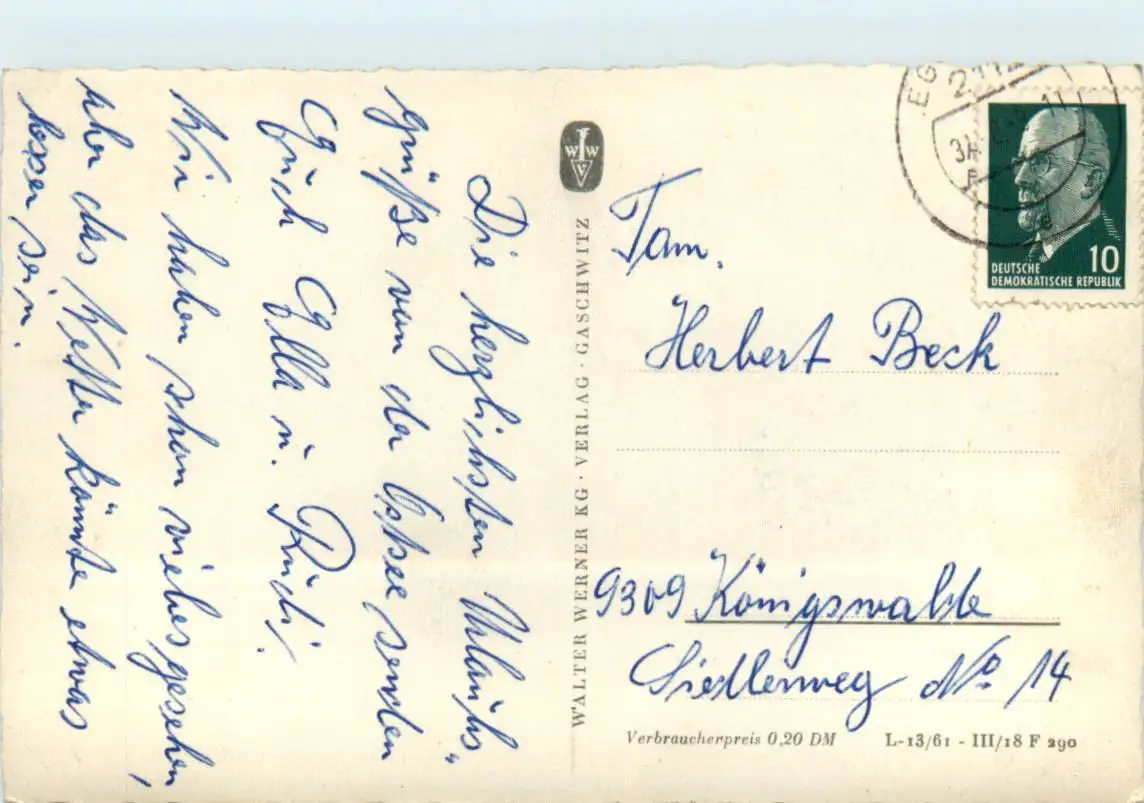 Die herzlichsten Urlaubs-
grüße von der Ostsee senden
Euch Ella u. Rudi.
Wir haben schon vieles gesehen,
aber das Wetter könnte etwas
besser sein.
WWV
WALTER WERNER KG · VERLAG · GASCHWITZ
2112
31
11
DEUTSCHE
DEMOKRATISCHE REPUBLIK
10
Fam.
Herbert Beck
9309 Königswalde
Siedlerweg No 14
Verbraucherpreis 0,20 DM
L-13/61 - III/18 F 290